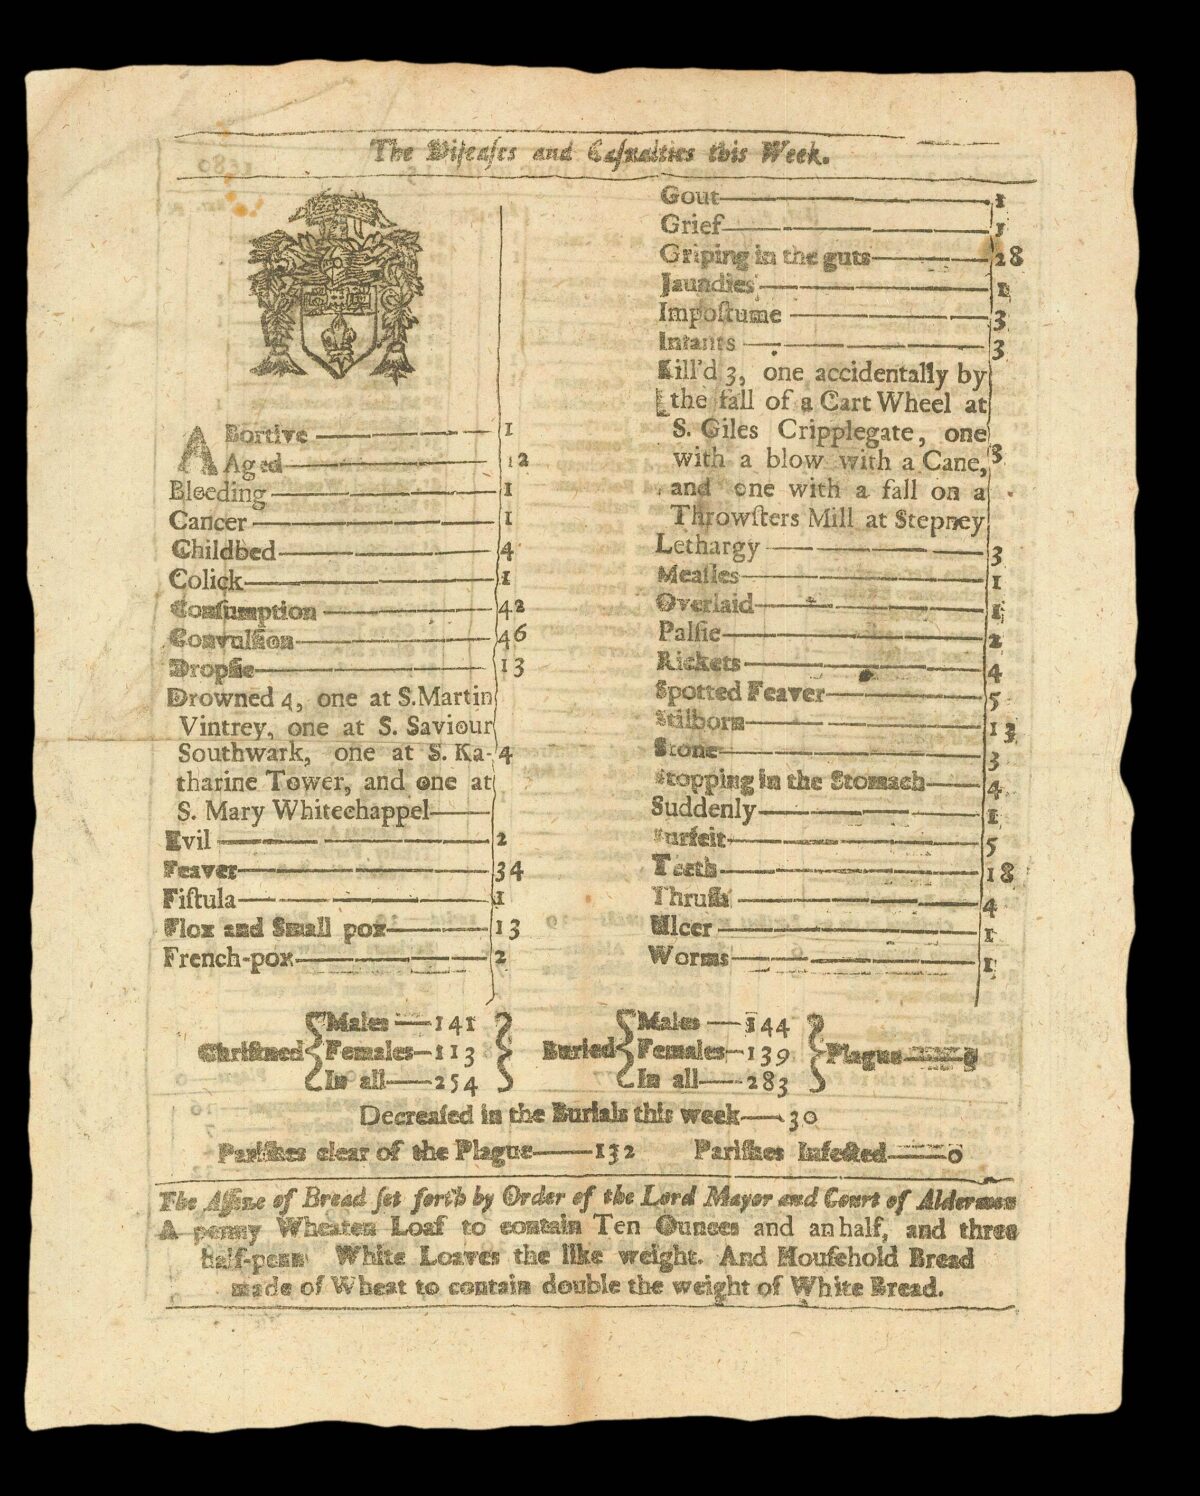 The Diseaſes and Caſualties this Week.
ABortive 1
Aged 12
Bleeding 1
Cancer 1
Childbed 4
Colick 1
Conſumption 42
Convulſion 46
Dropſie 13
Drowned 4, one at S. Martin
Vintrey, one at S. Saviour
Southwark, one at S. Ka- 4
tharine Tower, and one at
S. Mary Whitechappel
Evil 2
Feaver 34
Fiſtula 1
Flox and Small pox 13
French-pox 2
Gout 1
Grief 1
Griping in the guts 28
Jaundies 1
Impoſtume 3
Infants 3
Kill'd 3, one accidentally by
the fall of a Cart Wheel at
S. Giles Cripplegate, one
with a blow with a Cane, 3
and one with a fall on a
Throwſters Mill at Stepney
Lethargy 3
Meaſles 1
Overlaid 1
Palſie 2
Rickets 4
Spotted Feaver 5
Stilborn 13
Stone 3
Stopping in the Stomach 4
Suddenly 1
Surfeit 5
Teeth 18
Thruſh 4
Ulcer 1
Worms 1
Chriſtned { Males 141 Females 113 In all 254 }
Buried { Males 144 Females 139 In all 283 } Plague 0
Decreaſed in the Burials this week 30
Pariſhes clear of the Plague 132 Pariſhes Infected 0
The Aſſize of Bread ſet forth by Order of the Lord Mayor and Court of Aldermen
A penny Wheaten Loaf to contain Ten Ounces and an half, and three
half-penny White Loaves the like weight. And Houſehold Bread
made of Wheat to contain double the weight of White Bread.